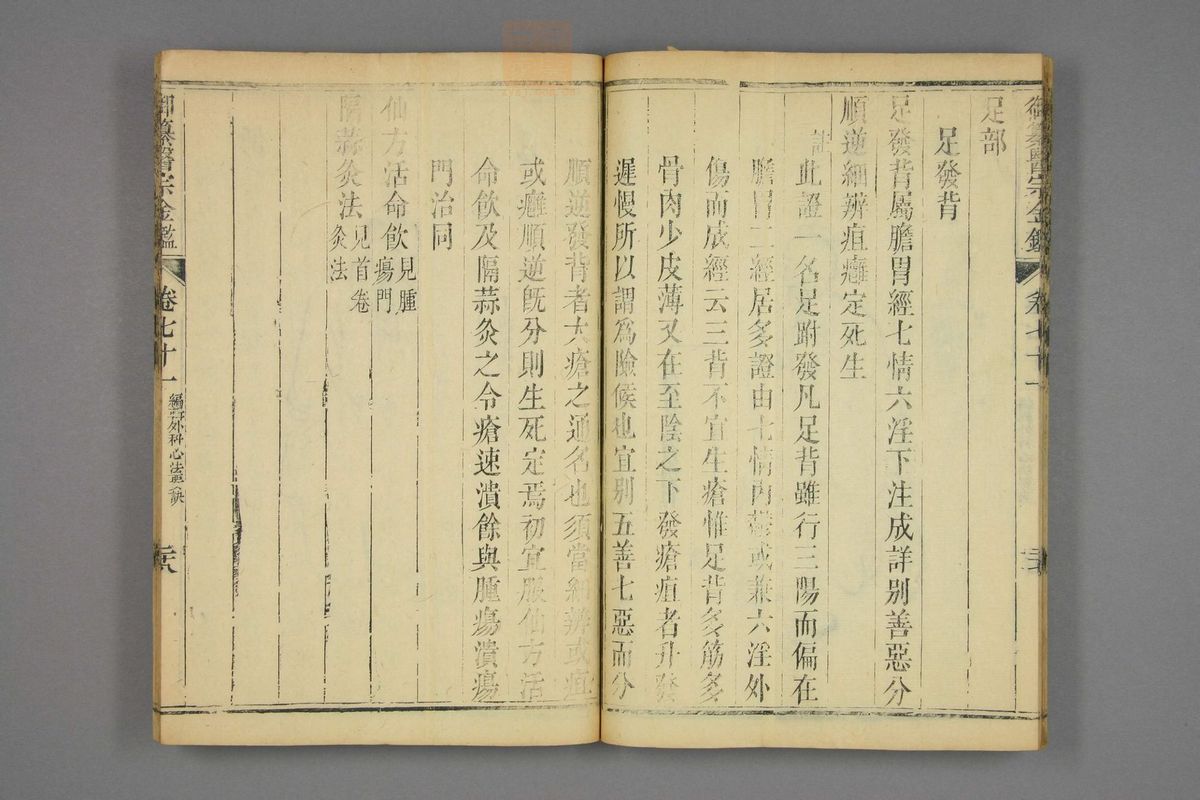 御纂醫宗金鑑 卷七十一
足部
足發背
足發背屬膽胃經七情六淫下注成詳別善惡分
順逆細辨疽癰定死生
註此證一名足跗發凡足背雖行三陽而偏在
膽胃二經居多證由七情內鬱或兼六淫外
傷而成經云三背不宜生瘡惟足背多筋多
骨肉少皮薄又在至陰之下發瘡疽者升發
遲慢所以謂為險候也宜別五善七惡而分
順逆發背者大瘡之通名也須當細辨或疽
或癰順逆既分則生死定焉初宜服仙方活
命飲及隔蒜灸之令瘡速潰餘與腫瘍潰瘍
門治同
仙方活命飲見腫瘍門
隔蒜灸法見首卷灸法
御纂醫宗金鑑 卷七十一 編註外科心法要訣 二六